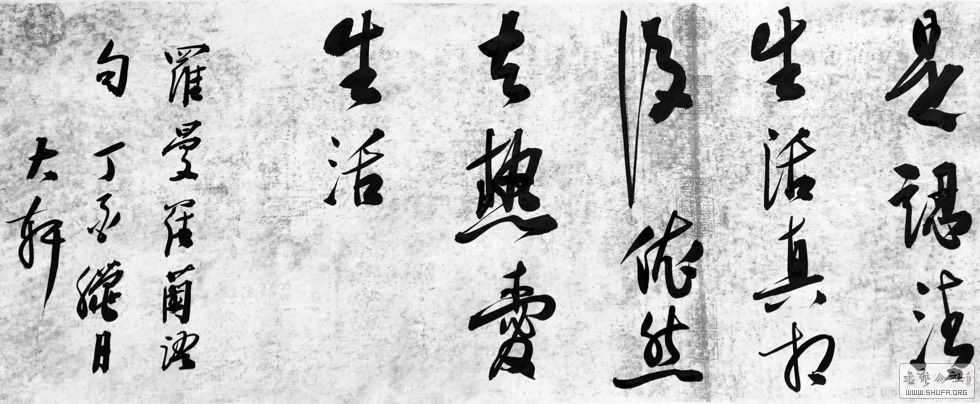 是認清
生活真相
後依然
去熱愛
生活
羅曼羅蘭語
句丁亥臘月
大軒
書法命社
WWW.SHUFA.ORG